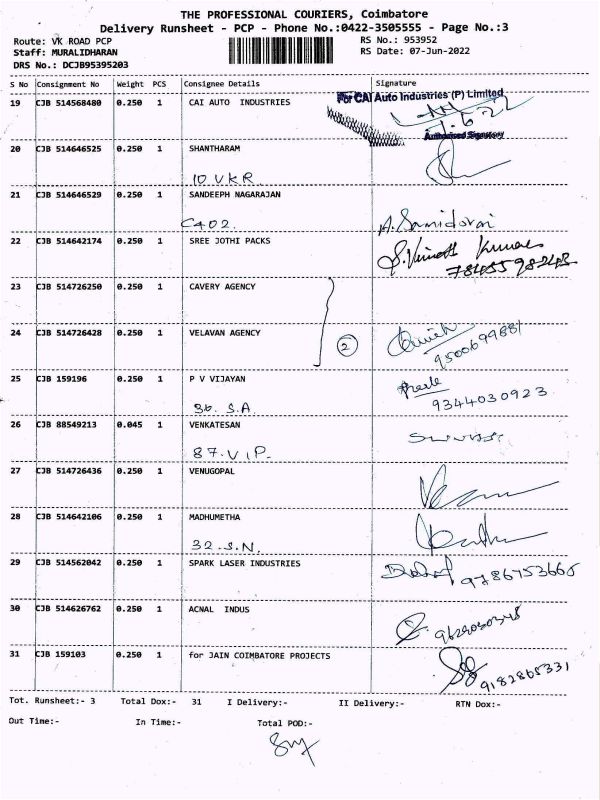 THE PROFESSIONAL COURIERS, Coimbatore
Delivery Runsheet - PCP - Phone No.:0422-3505555 - Page No.:3
Route: VK ROAD PCP RS No.: 953952
Staff: MURALIDHARAN RS Date: 07-Jun-2022
DRS No.: DCJB95395203
S No Consignment No Weight PCS Consignee Details Signature
19 CJB 514568480 0.250 1 CAI AUTO INDUSTRIES For CAI Auto Industries (P) Limited
Authorised Signatory
20 CJB 514646525 0.250 1 SHANTHARAM
10 VKR.
21 CJB 514646529 0.250 1 SANDEEPH NAGARAJAN
C402. A. Samidorai
22 CJB 514642174 0.250 1 SREE JOTHI PACKS S. Vinoth Kumar
23 CJB 514726250 0.250 1 CAVERY AGENCY
24 CJB 514726428 0.250 1 VELAVAN AGENCY
2 9500699881
25 CJB 159196 0.250 1 P V VIJAYAN
36. S.A. 9344030923
26 CJB 88549213 0.045 1 VENKATESAN
87. V.P.
27 CJB 514726436 0.250 1 VENUGOPAL
28 CJB 514642106 0.250 1 MADHUMETHA
32. S.N.
29 CJB 514562042 0.250 1 SPARK LASER INDUSTRIES 9786753665
30 CJB 514626762 0.250 1 ACNAL INDUS
31 CJB 159103 0.250 1 for JAIN COIMBATORE PROJECTS
9182865331
Tot. Runsheet:- 3 Total Dox:- 31 I Delivery:- II Delivery:- RTN Dox:-
Out Time:- In Time:- Total POD:-